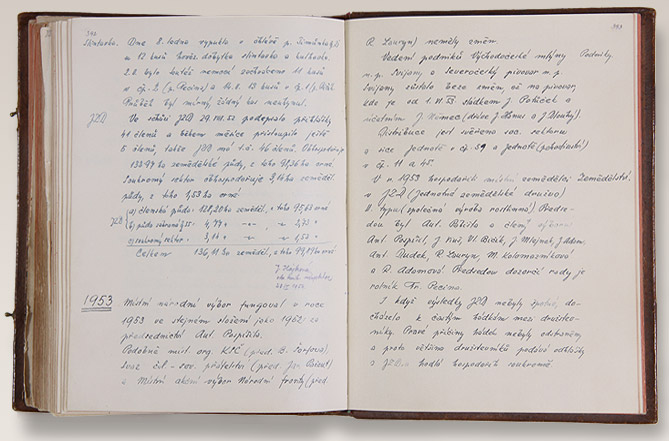 342
Slintavka. Dne 8. ledna vypukla v chlévě p.
u 12 kusů hověz. dobytka slintavka a kulhavka.
2.2. bylo kutéž nemocí zachváceno 11 kusů
v čp. 2 (p. Pecina) a 14.2. 13 kusů v čp. 1
Průběh byl mírný, žádný kus neuhynul.
JZD Ve schůzi JZD 29.VIII.52 podepsalo přihlášky
41 členů a během měsíce přistoupilo ještě
5 členů, takže JZD má t.č. 46 členů. Obhospodařuje
zemědělské půdy, z toho orné.
Soukromý sektor obhospodařuje zeměděl.
půdy, z toho 1,53 ha orné
JZD a) členská půda 128,20 ha zeměděl., z toho 95,63 orné
4,77 " " " 2,73 "
c) soukromý sektor 3,14 " " " 1,53 "
Celkem 136,11 ha zeměděl., z toho orné
1953 Místní národní výbor fungoval v roce
1953 ve stejném složení jako 1952 za
předsednictví Ant. Pospíšila.
Podobně míst. org. KSČ (před. B. Šorfová)
Svaz čsl.-sov. přátelství (před. Jos.
a Místní akční výbor Národní fronty (před.
343
R. Louryn) neměly změn.
Vedení podniků Východočeské mlýny Podniky.
n.p. Svijany a Severočeský pivovar n.p.
Svijany zůstalo beze změn, až na pivovar,
kde je od 1.VI.53 sládkem J. Poláček a
účetním J. Němec (dříve J. Hanuš a J. Dlouhý).
Distribuce jest svěřena soc. sektoru
a sice Jednotě v čp. 59 a Jednotě (pohostinství)
v čp. 11 a 45.
V r. 1953 hospodařili místní zemědělci Zemědělství
v JZD (Jednotné zemědělské družstvo)
II. typu (společná výroba rostlinná) Předse-
dou byl Ant. Půlpita a členy
Ant. Pospíšil, J. Kuř, Vl. Bičík, J. Mlejnek, J. Adam,
Ant. Dudek, R. Louryn, M. Kolomazníková
a R. Adamová Předsedou dozorčí rady je
rolník Fr. Pecina.
I když výsledky JZD nebyly špatné, do-
cházelo k častým hádkám mezi družstev-
níky. Pravé příčiny hádek nebyly odstraněny
a proto většina družstevníků podává odhlášky
z JZD a hodlá hospodařit soukromě.